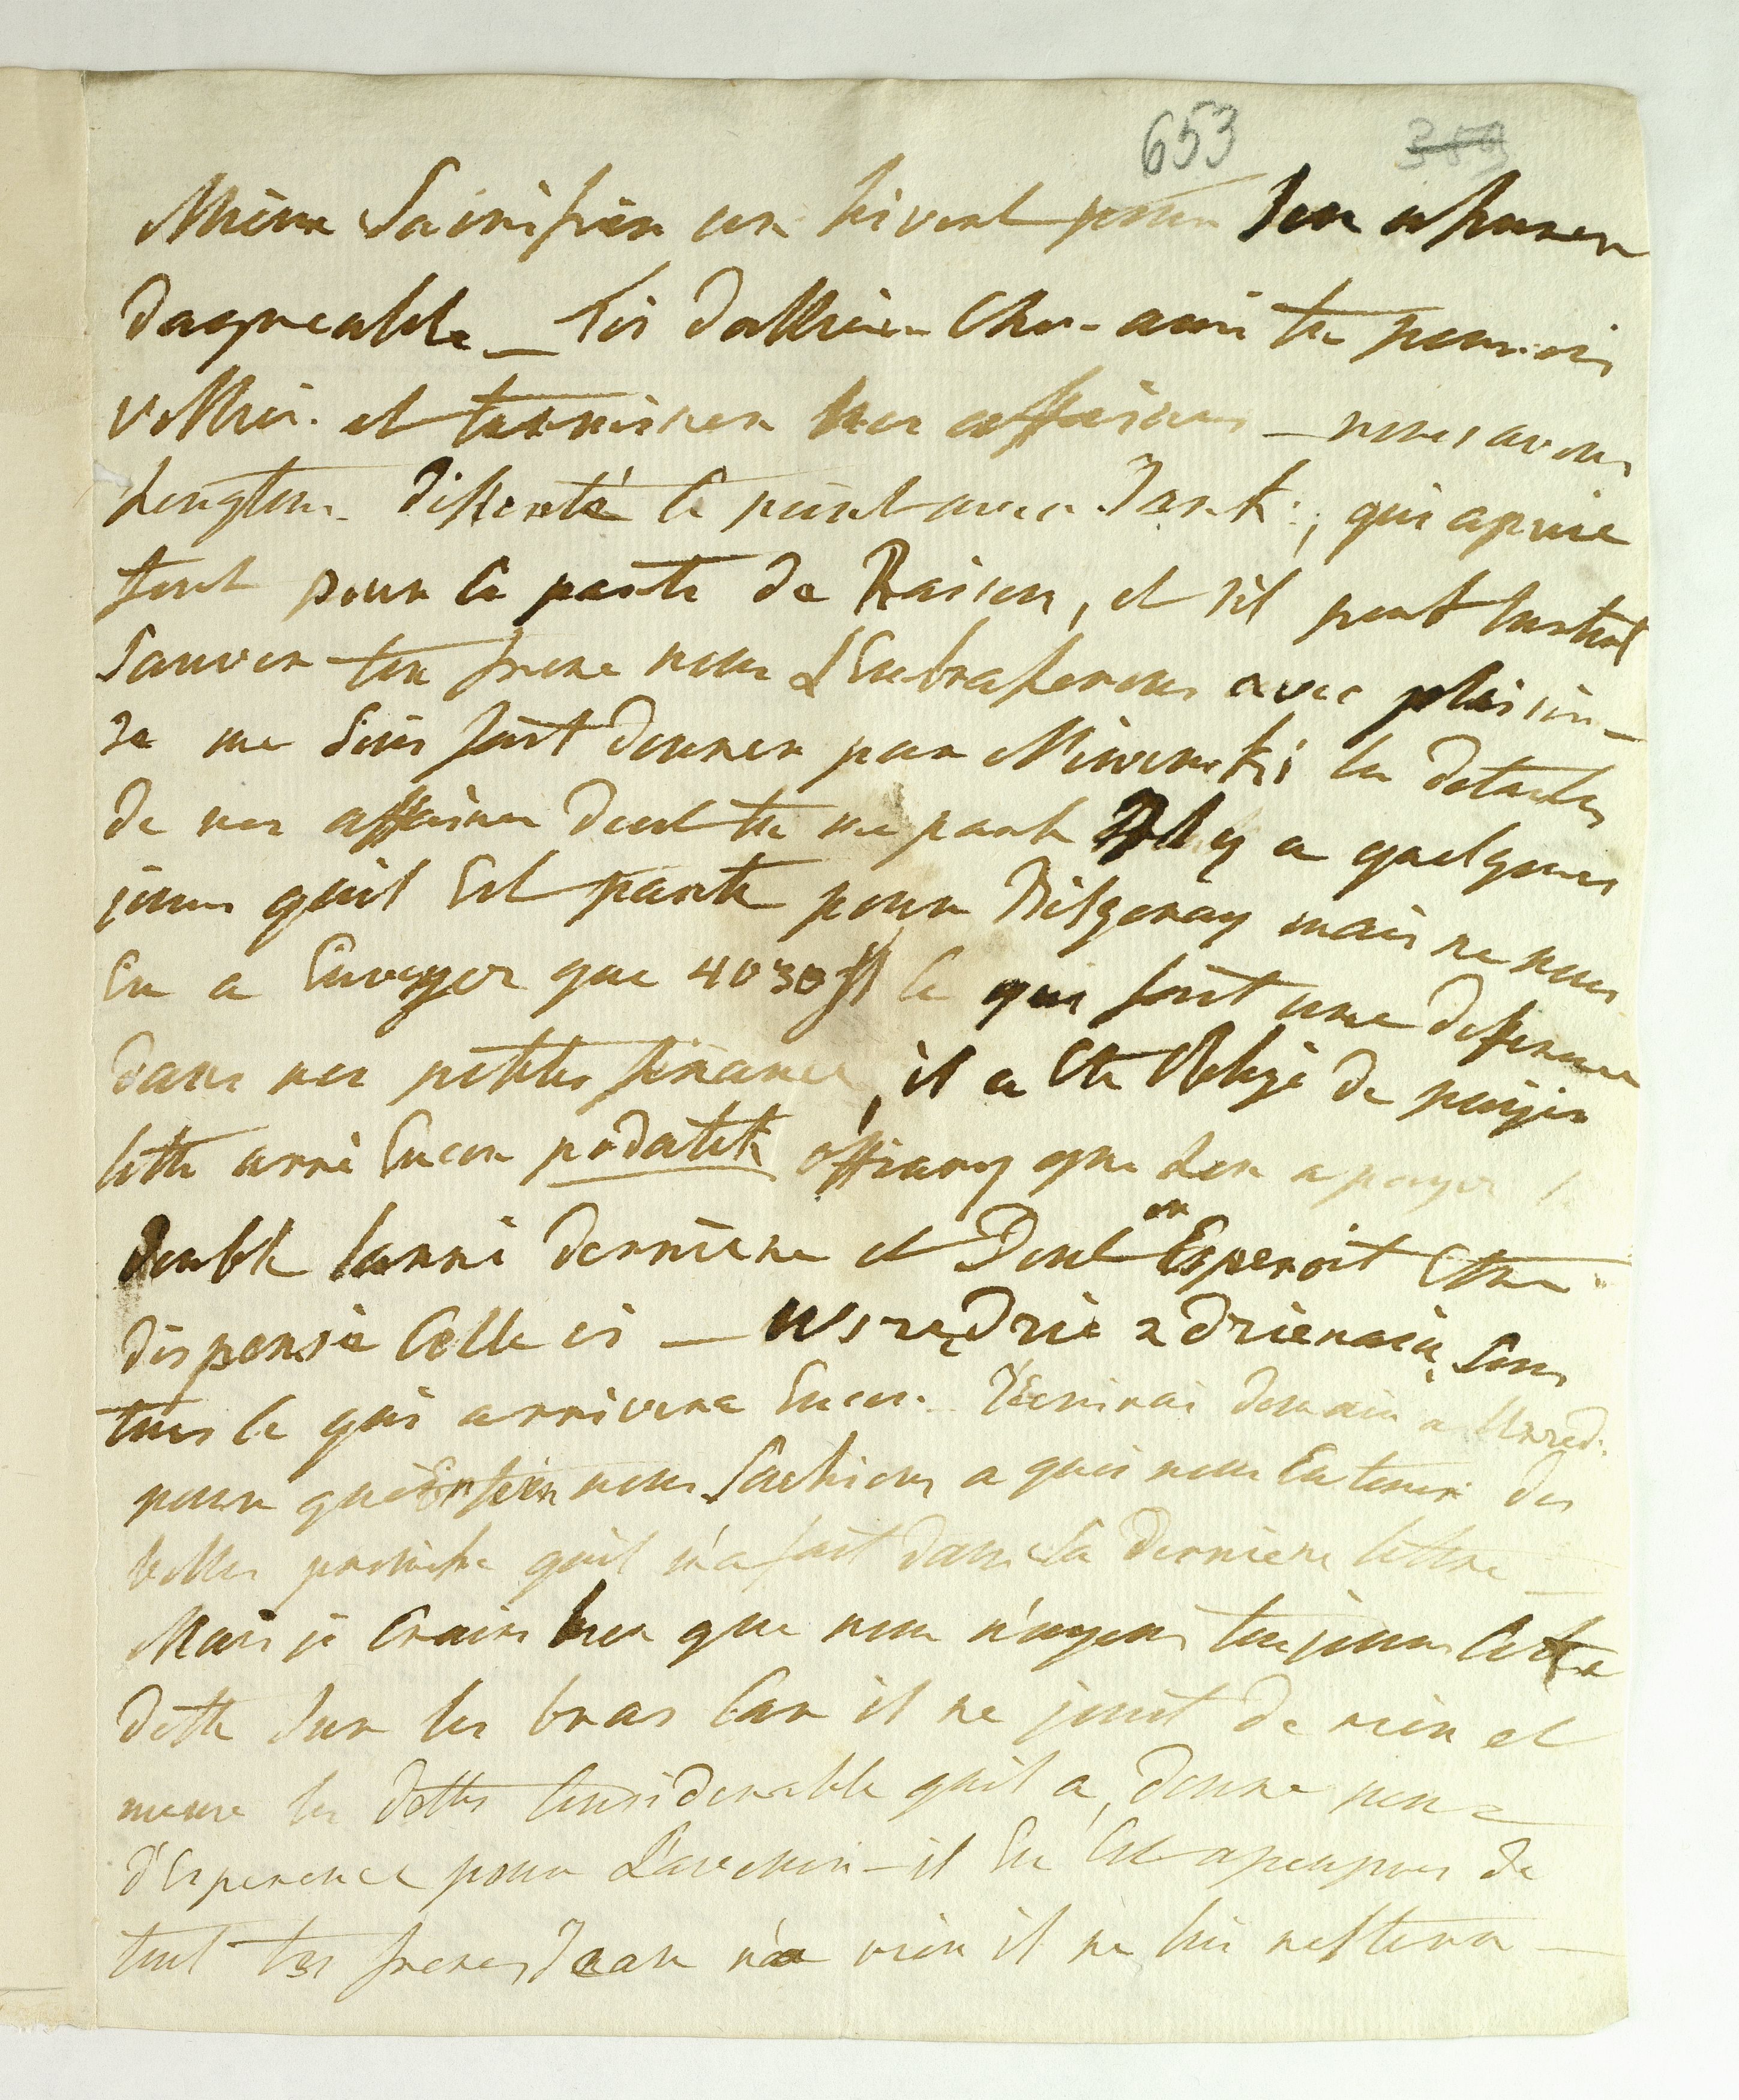 653 359
Même Sacrifier un hivert pour Son a faire
dagreable _ Toi dallieur Cher ami tu pourrois
vellier et terminer tes affaires _ nous avons
Longtems disserté Ce point avec Jask:, qui apuie
fort pour Ce parti de Raison, et s'il peut surtout
Sauver ton frere nous L'Enbraserons avec plaisir _
Je me Suis fait donner par Minewski les detailes
de nos affaires dont tu me parle Il y a quelques
jours quil Est parti pour Bilgoray mais ne nous
En a Envoyer que 4030 fl Ce qui fait une diference
dans nos petites finances, il a Ete Obligé de paijer
Cette anné Encor podatek offiary que Lon a payer le
double Lanné derniere et Dont on Esperoit Etre
dispensé Celle ci _ Wszędzie zdzieraią Sans
tous Ce qui arrivera Encor. J'Ecrirai demain a
pour qu'Enfin nous Sachions a quoi nous En tenir des
belles promesse quil m'a fait dans Sa derniere lettre _
Mais je Crains bien que nous n'ayons toujours Cette
dette Sur les bras Car il ne jouit de rien et
meme les dettes Considerable quil a, donne peu
d'Esperence pour L'avenir _ il En Est apeupres de
tout tes freres Jean n'a rien il ne lui restera _